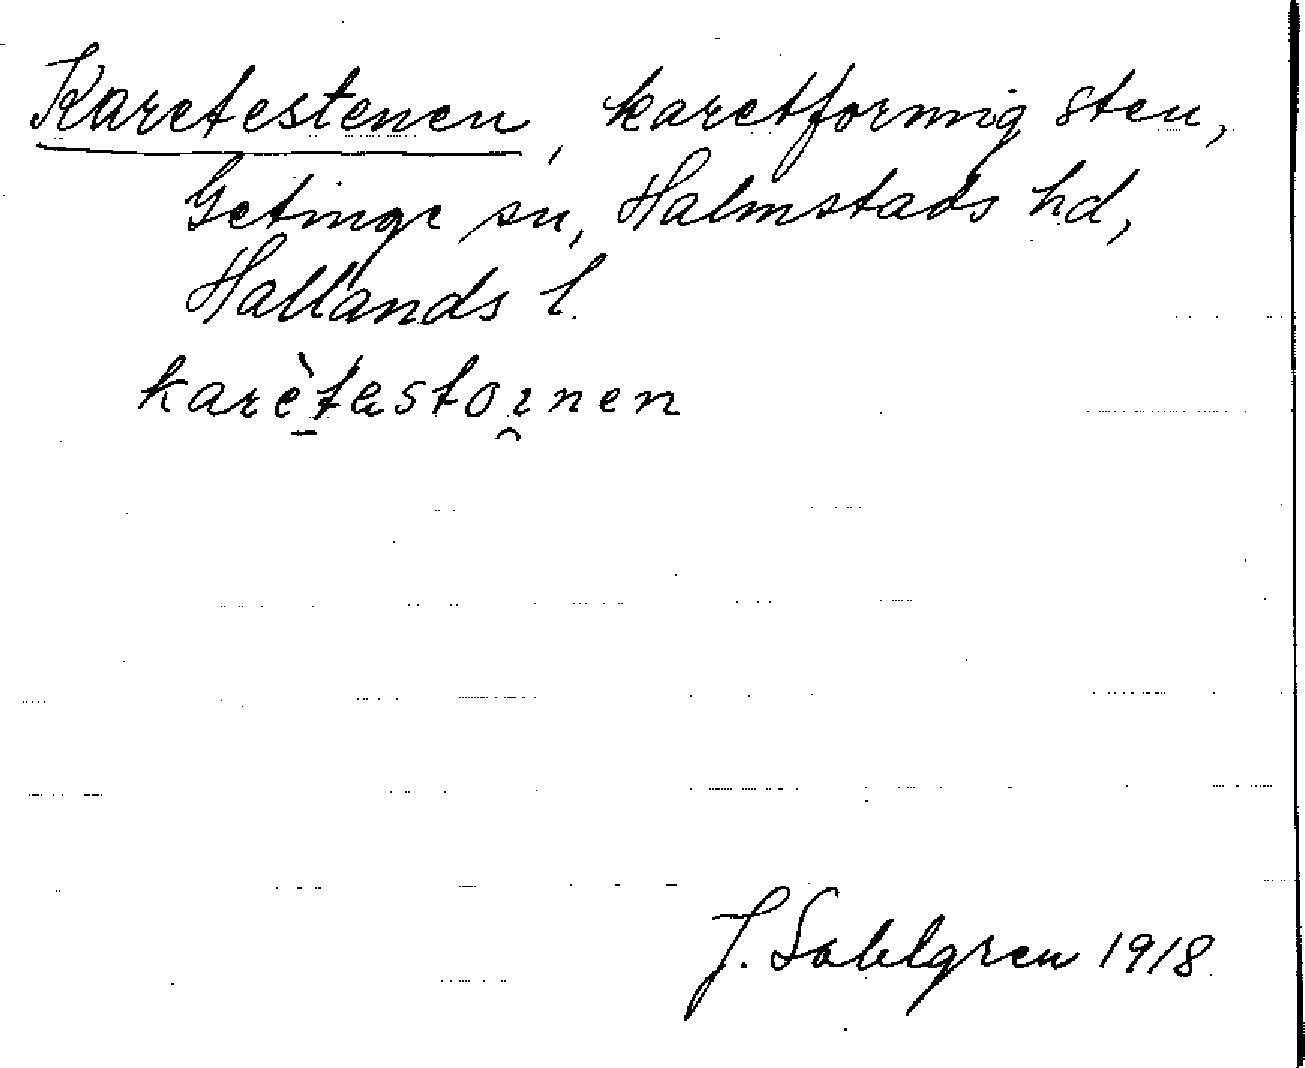 Karetestenen, karetformig sten,
Getinge sn, Halmstads hd,
Hallands l.
karè̱təstoı̯nen
J. Sahlgren 1918